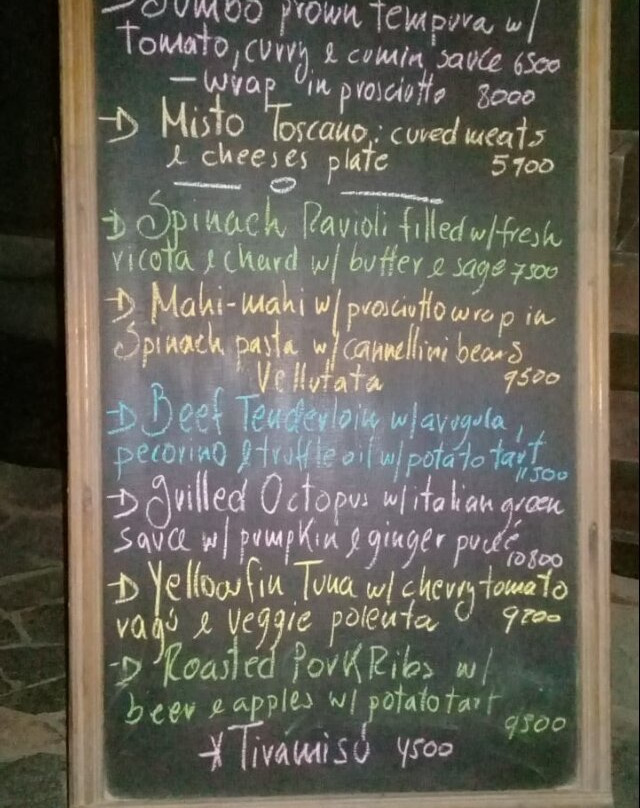 Jumbo prown tempura w/
tomato, curry e cumin sauce 6500
– wrap in prosciutto 8000
Misto Toscano: cured meats
e cheeses plate 5900
Spinach Ravioli filled w/ fresh
ricota e chard w/ butter e sage 7500
Mahi-mahi w/ prosciutto wrap in
Spinach pasta w/ cannellini beans
Vellutata 9500
Beef Tenderloin w/ arugula,
pecorino e truffle oil w/ potato tart
11500
Grilled Octopus w/ italian green
sauce w/ pumpkin e ginger pureé
10800
Yellowfin Tuna w/ cherry tomato
ragú e veggie polenta 9200
Roasted Pork Ribs w/
beer e apples w/ potato tart
9500
* Tiramisú 4500